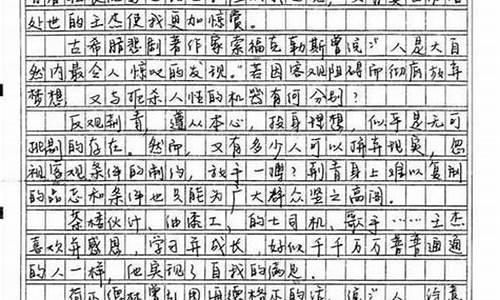 处世的王杰使我更加惊赏。
古希腊悲剧著作家索福克勒斯曾说:"人是大自
然内最令人惊叹的发现。"若因客观阻碍而彻底放弃
梦想,又与扼杀人性的机器有何分别?
反观荆青,遵从本心,投身理想,似乎是无可
挑剔的存在。然而,又有多少人可以摒弃现实,忽
视客观条件的制约,放手一搏?荆青身上难以复制
的品志和条件也只能为广大群众竖之高阁。
茶楼伙计、油漆工、的士司机、歌手……王杰
喜欢并感恩,学习并成长,好似千千万万普普通通
的人一样,他实现了自我的满足。